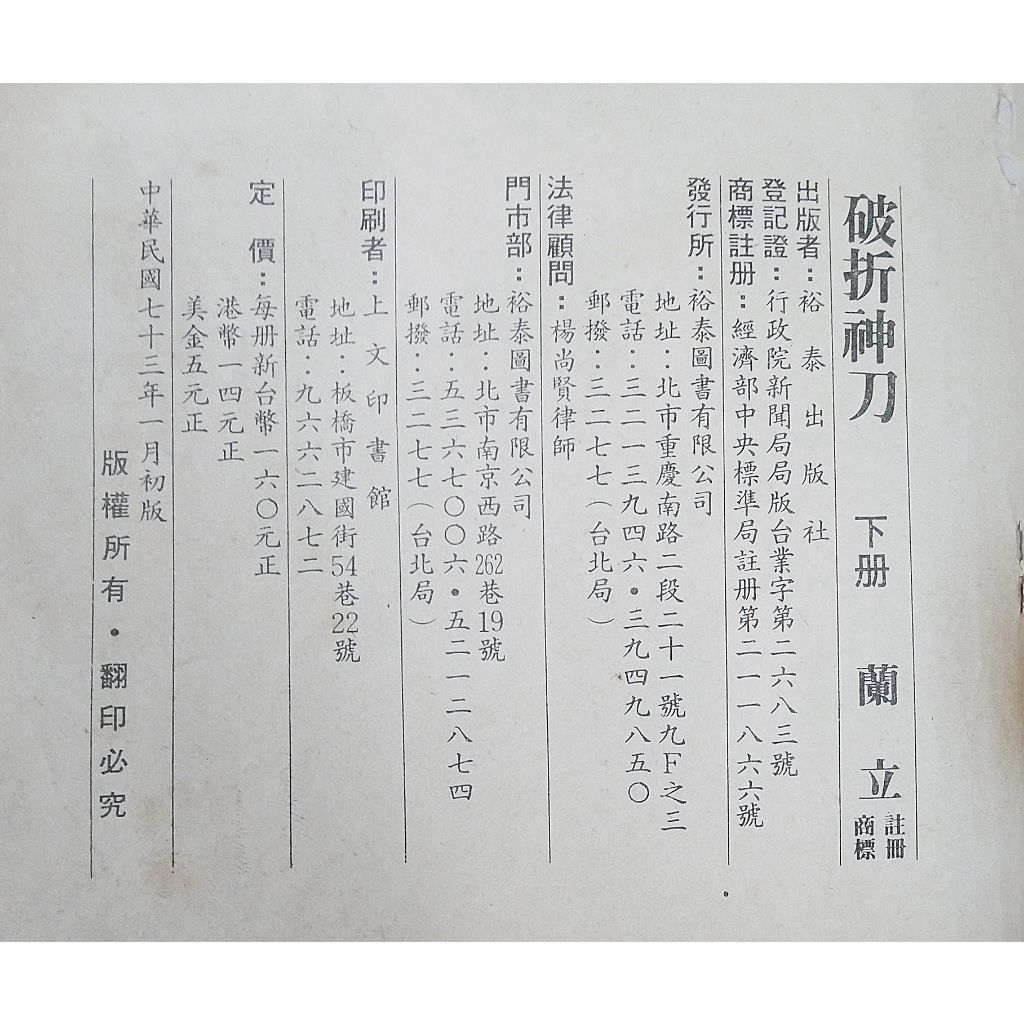 破折神刀 下册 蘭立 註冊商標
出版者：裕泰出版社
登記證：行政院新聞局局版台業字第二六八三號
商標註册：經濟部中央標準局註册第二一一八六六號
發行所：裕泰圖書有限公司
地址：北市重慶南路二段二十一號九F之三
電話：三二一三九四六•三九四九八五〇
郵撥：三二七七（台北局）
法律顧問：楊尚賢律師
門市部：裕泰圖書有限公司
地址：北市南京西路262巷19號
電話：五三六七〇〇六•五二一二八七四
郵撥：三二七七（台北局）
印刷者：上文印書館
地址：板橋市建國街54巷22號
電話：九六六二八七二
定價：每册新台幣一六〇元正
港幣一四元正
美金五元正
中華民國七十三年一月初版
版權所有•翻印必究